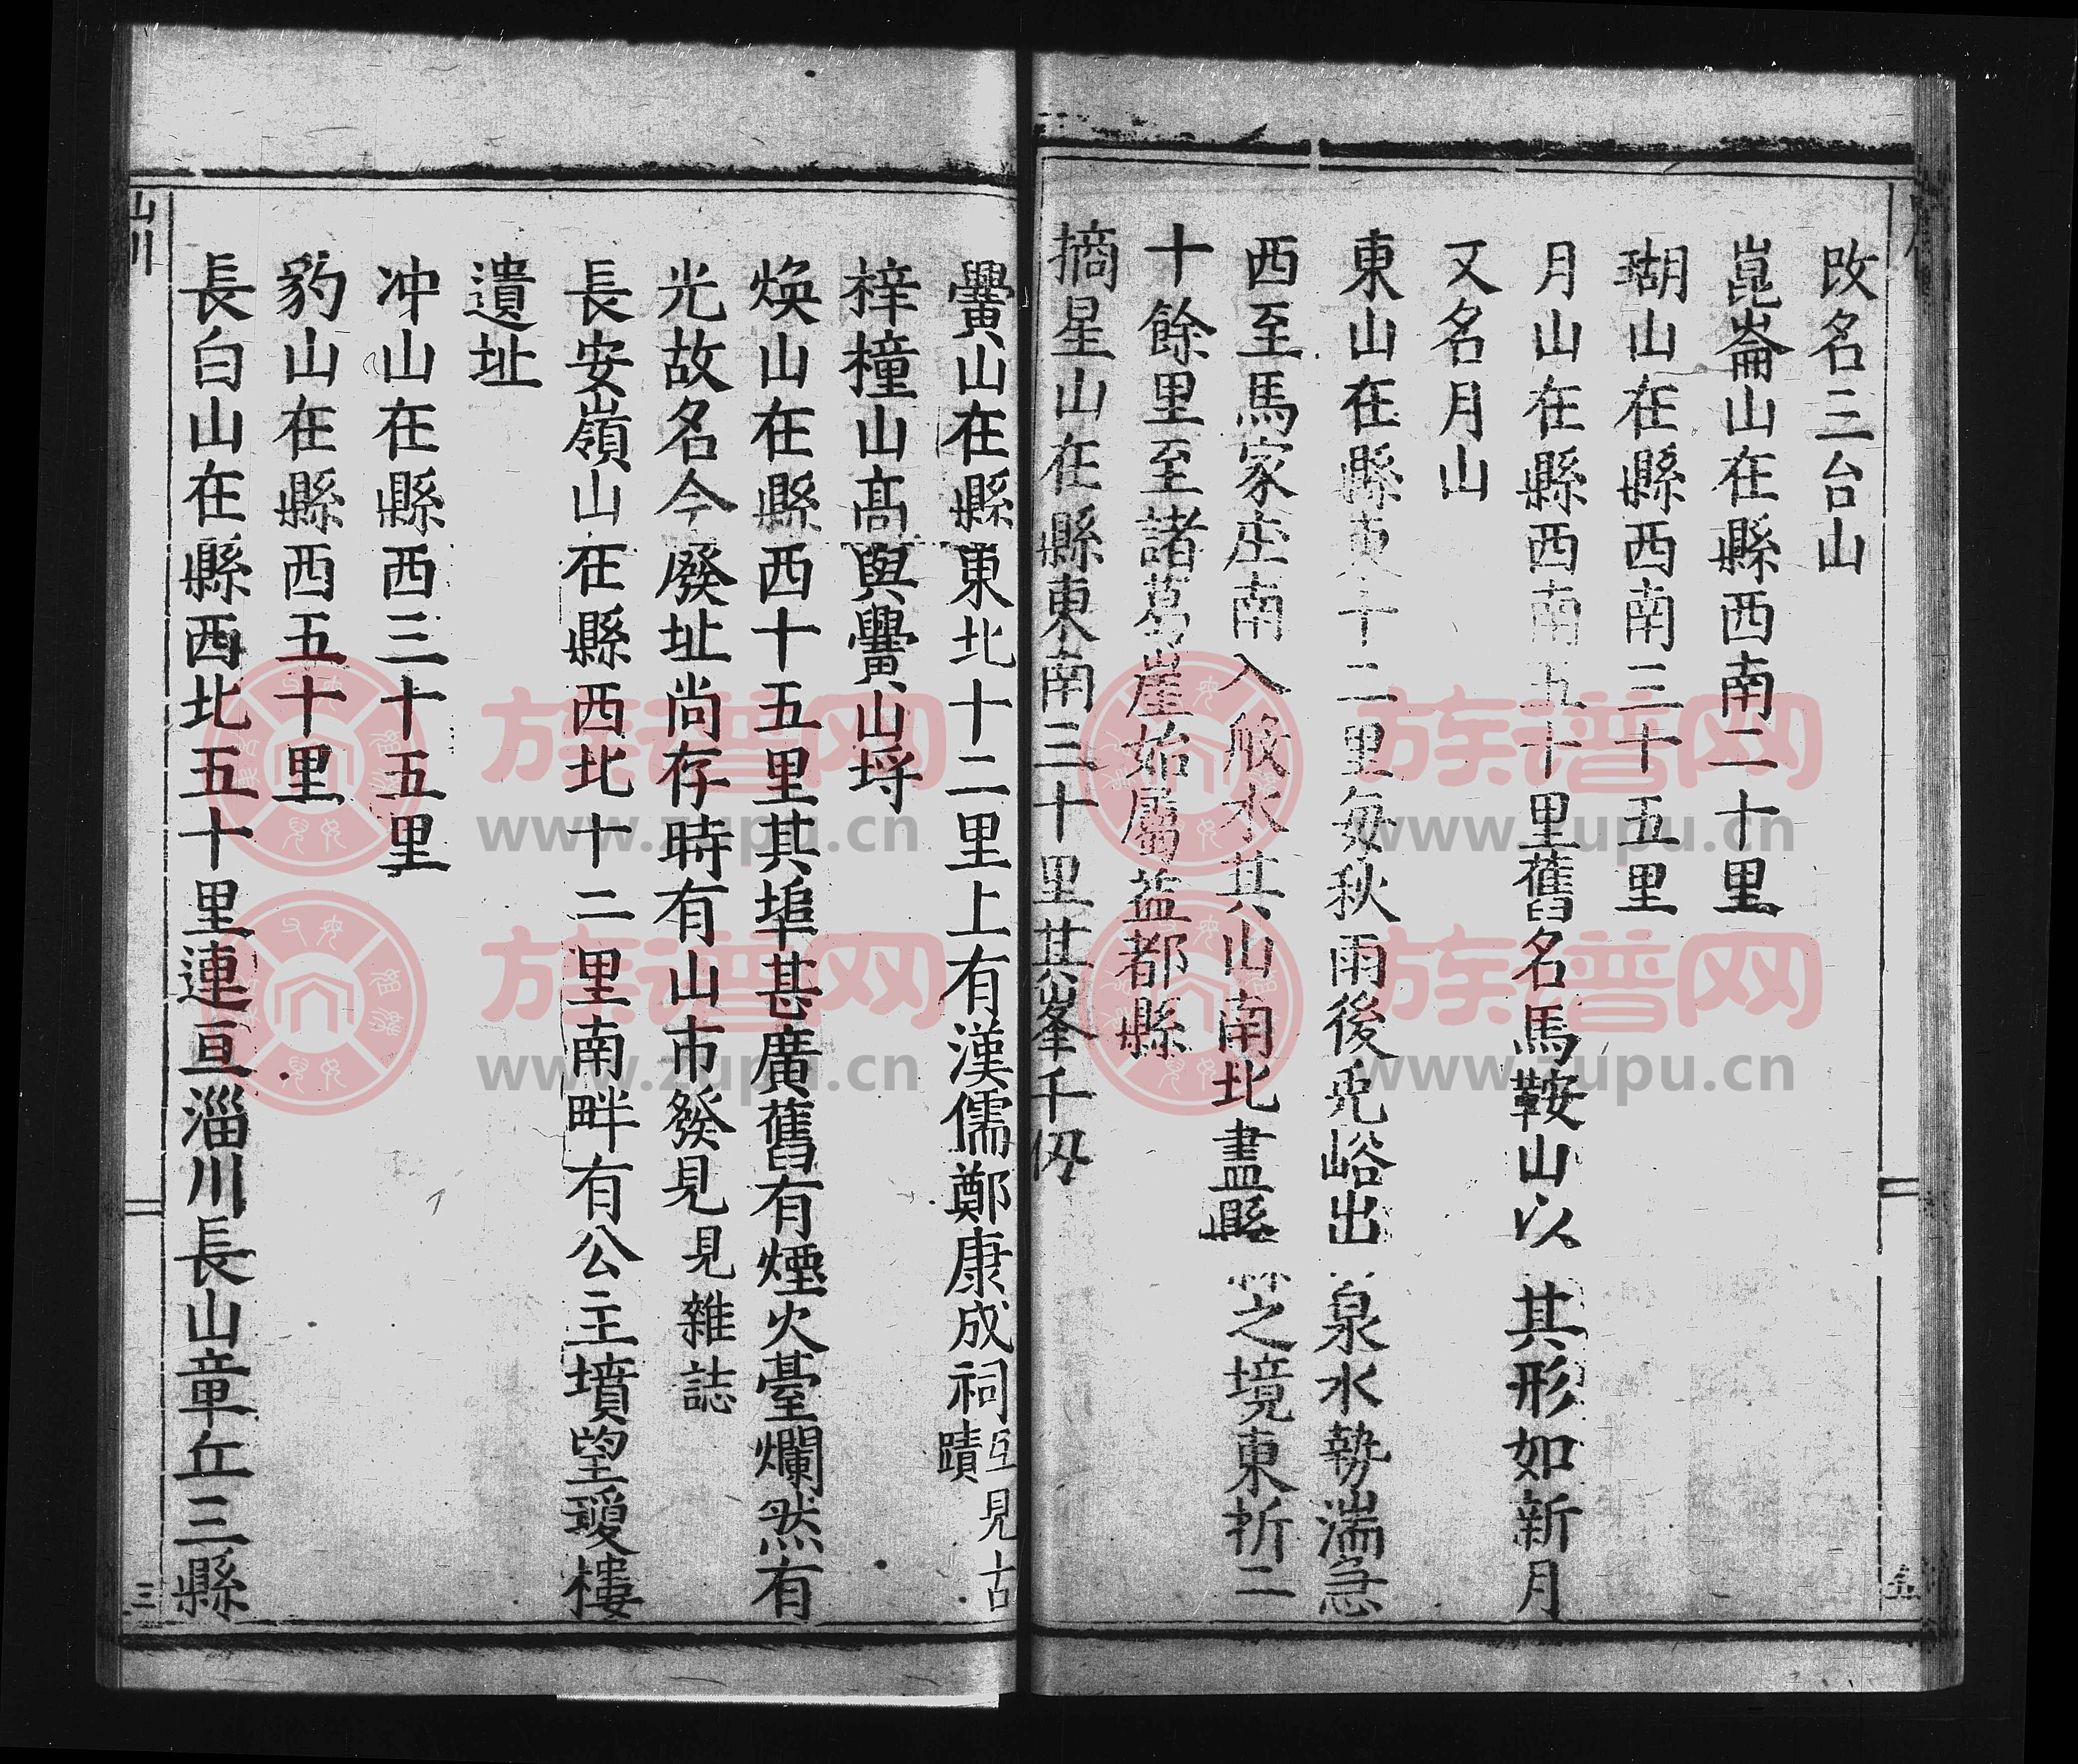 改名三台山
崑崙山在縣西南二十里
瑚山在縣西南三十五里
月山在縣西南五十里舊名馬鞍山以其形如新月
又名月山
東山在縣東十二里每秋雨後兎峪出泉水勢湍急
西至馬家庄南入般水其山南北盡縣之境東折二
十餘里至諸葛崖始屬益都縣
摘星山在縣東南三十里其峯千仭
黌山在縣東北十二里上有漢儒鄭康成祠互見古
蹟
梓橦山高與黌山埒
煥山在縣西十五里其埠甚廣舊有煙火臺爛然有
光故名今廢址尚存時有山市發見見雜誌
長安嶺山在縣西北十二里南畔有公主墳望瓊樓
遺址
冲山在縣西三十五里
豹山在縣西五十里
長白山在縣西北五十里連亘淄川長山章丘三縣
山川
三
族谱网
www.zupu.cn
族谱网
www.zupu.cn
族谱网
www.zupu.cn
族谱网
www.zupu.cn